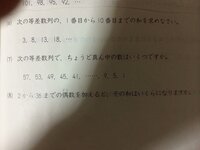 101, 98, 95, 92, …
(6) 次の等差数列の、1番目から10番目までの和を求めなさい。
3, 8, 13, 18, …
(7) 次の等差数列で、ちょうど真ん中の数はいくつですか。
57, 53, 49, 45, 41, ……, 9, 5, 1
(8) 2から36までの偶数を加えると、その和はいくらになりますか。